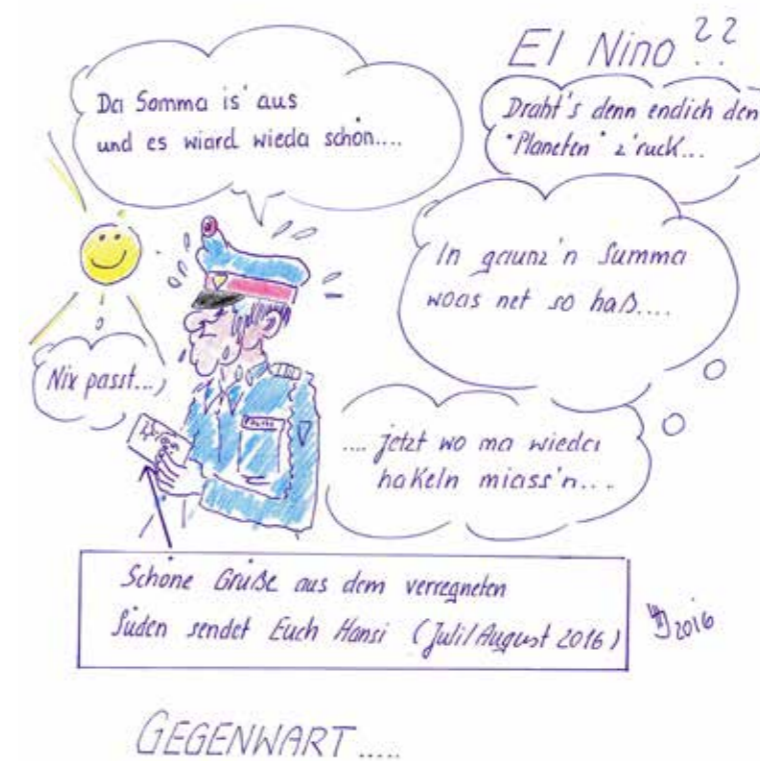 El Nino ??
Da Somma is' aus
und es wiard wieda schön....
Draht's denn endich den
"Planeten" z'ruck...
In gaunz'n Summa
woas net so haß....
Nix passt...
.... jetzt wo ma wieda
hakeln miass'n....
Schöne Grüße aus dem verregneten
Süden sendet Euch Hansi (Juli/August 2016)
2016
GEGENWART.....